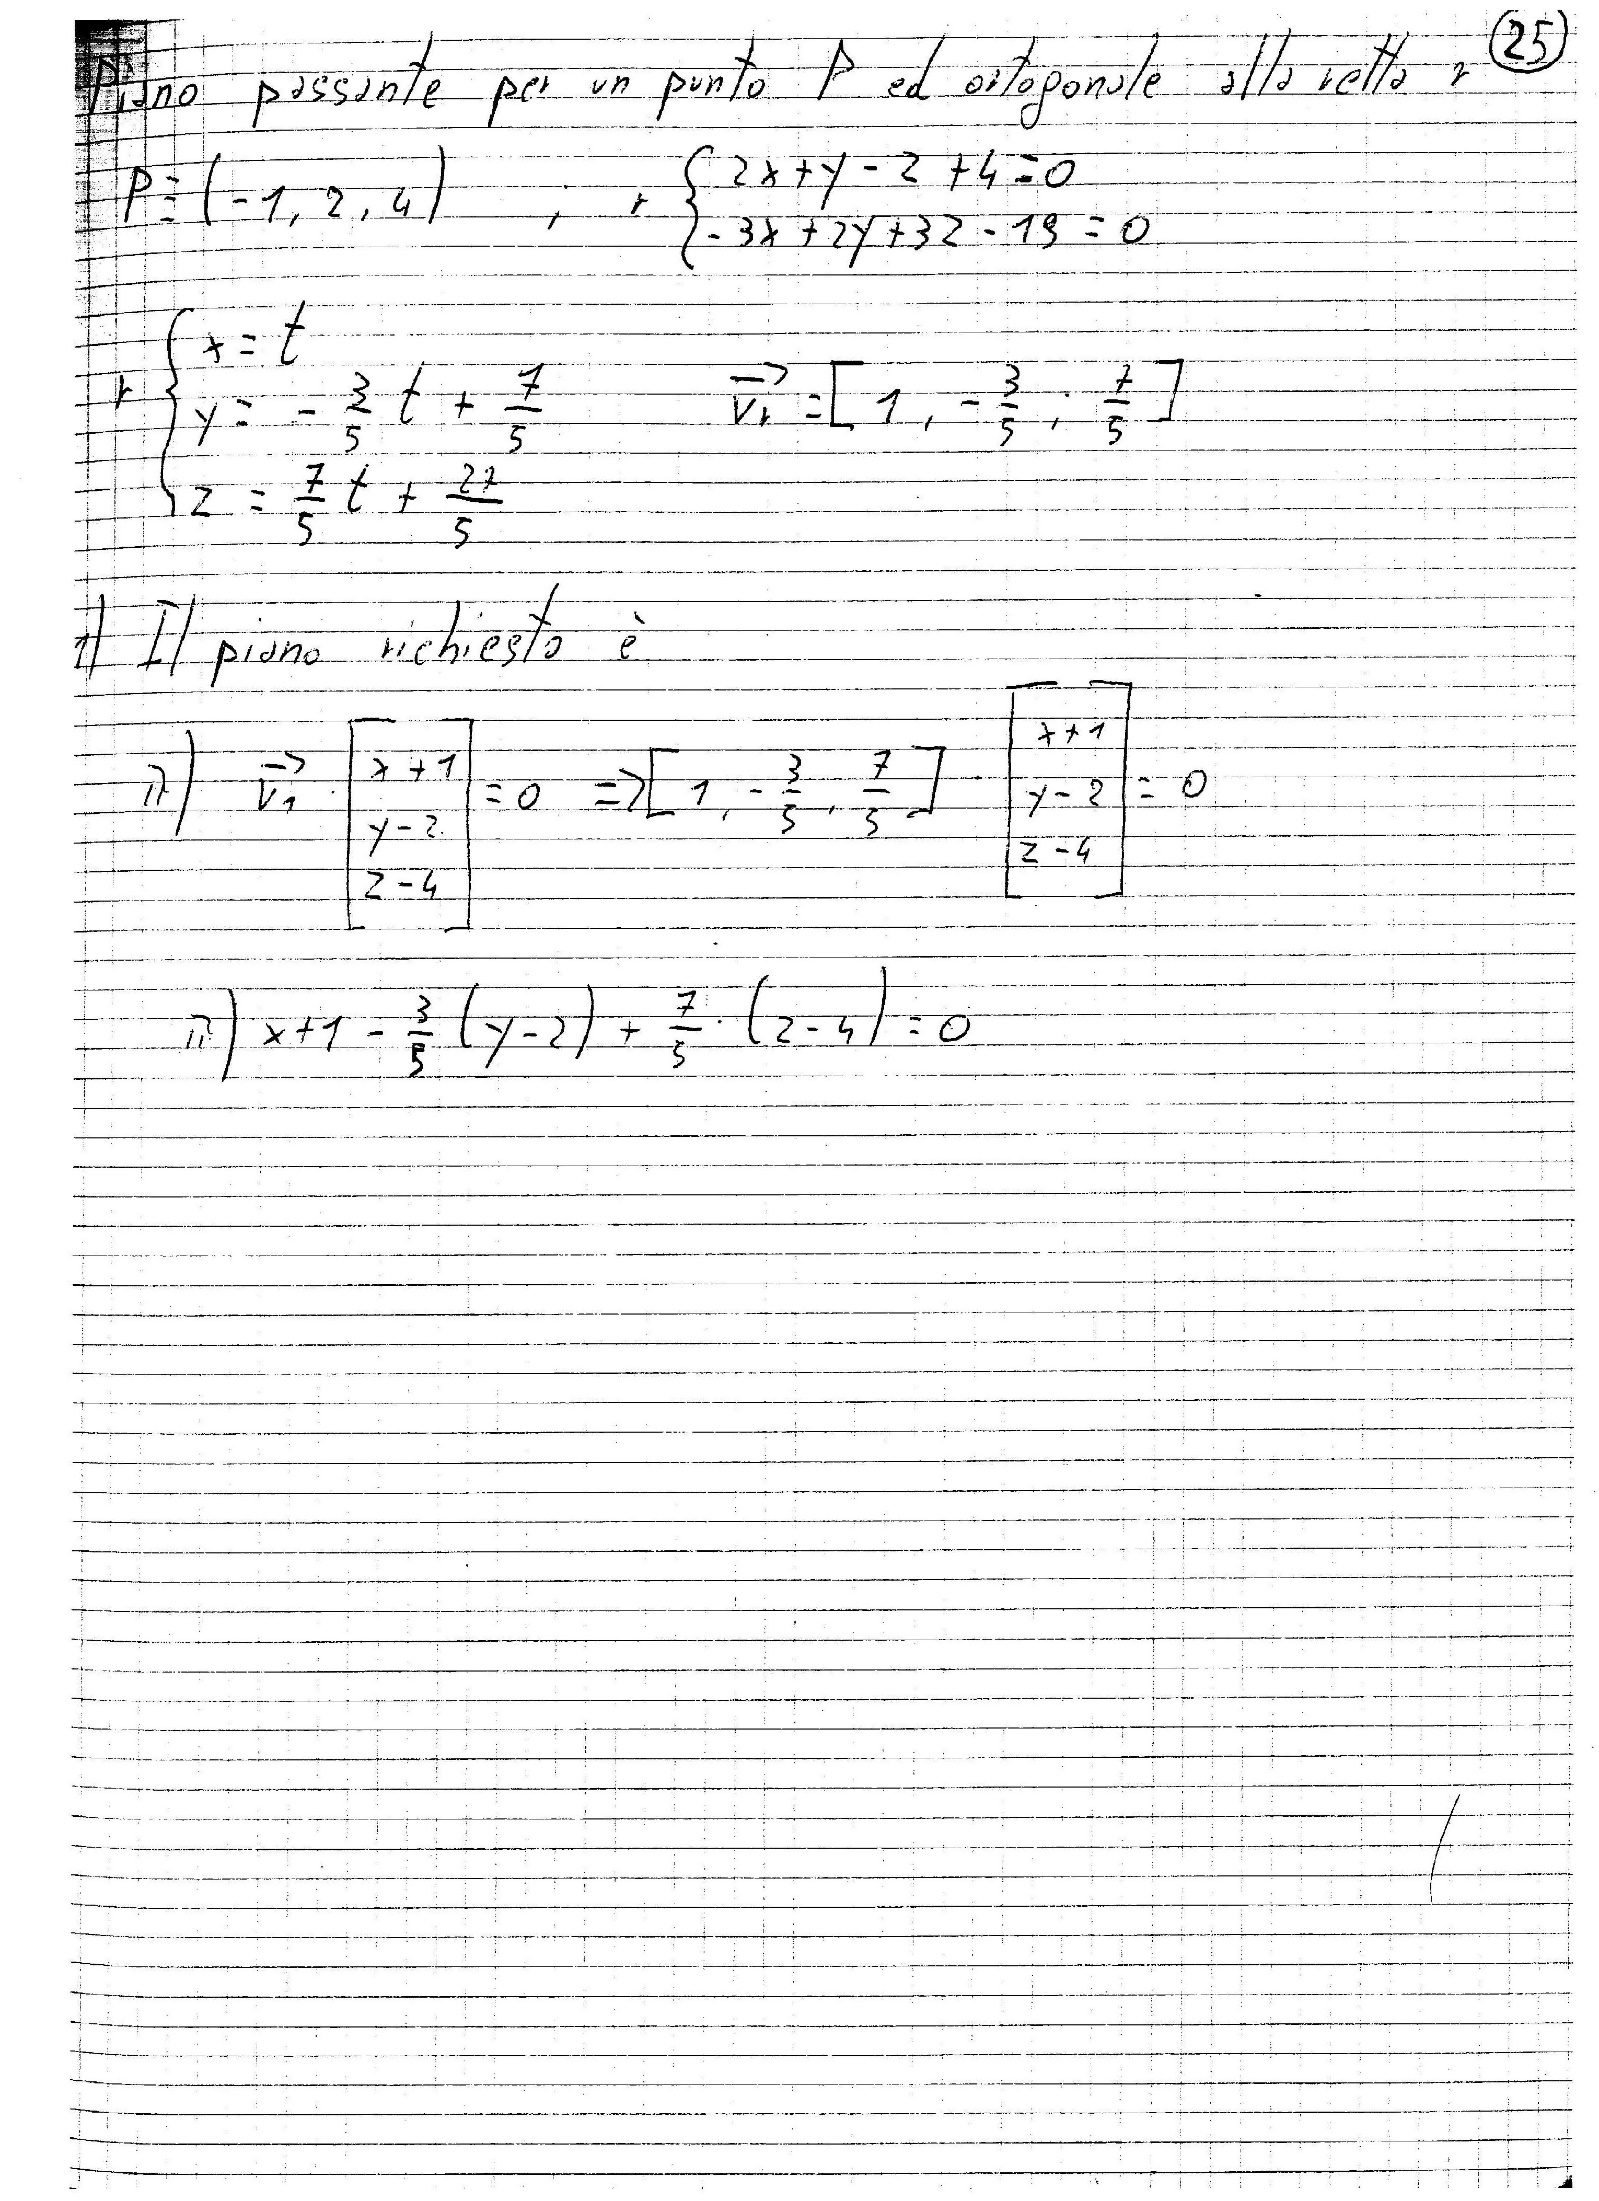 25
Piano passante per un punto P ed ortogonale alla retta r
P ≡ (-1, 2, 4) ; r { 2x+y-z+4=0
-3x+2y+3z-19=0
r { x = t
y = -3/5 t + 7/5 v⃗r = [1, -3/5, 7/5]
z = 7/5 t + 27/5
1) Il piano richiesto è
π) v⃗1 · [x+1 y-2 z-4] = 0 => [1, -3/5, 7/5] [x+1 y-2 z-4] = 0
π) x+1 - 3/5 (y-2) + 7/5 · (z-4) = 0